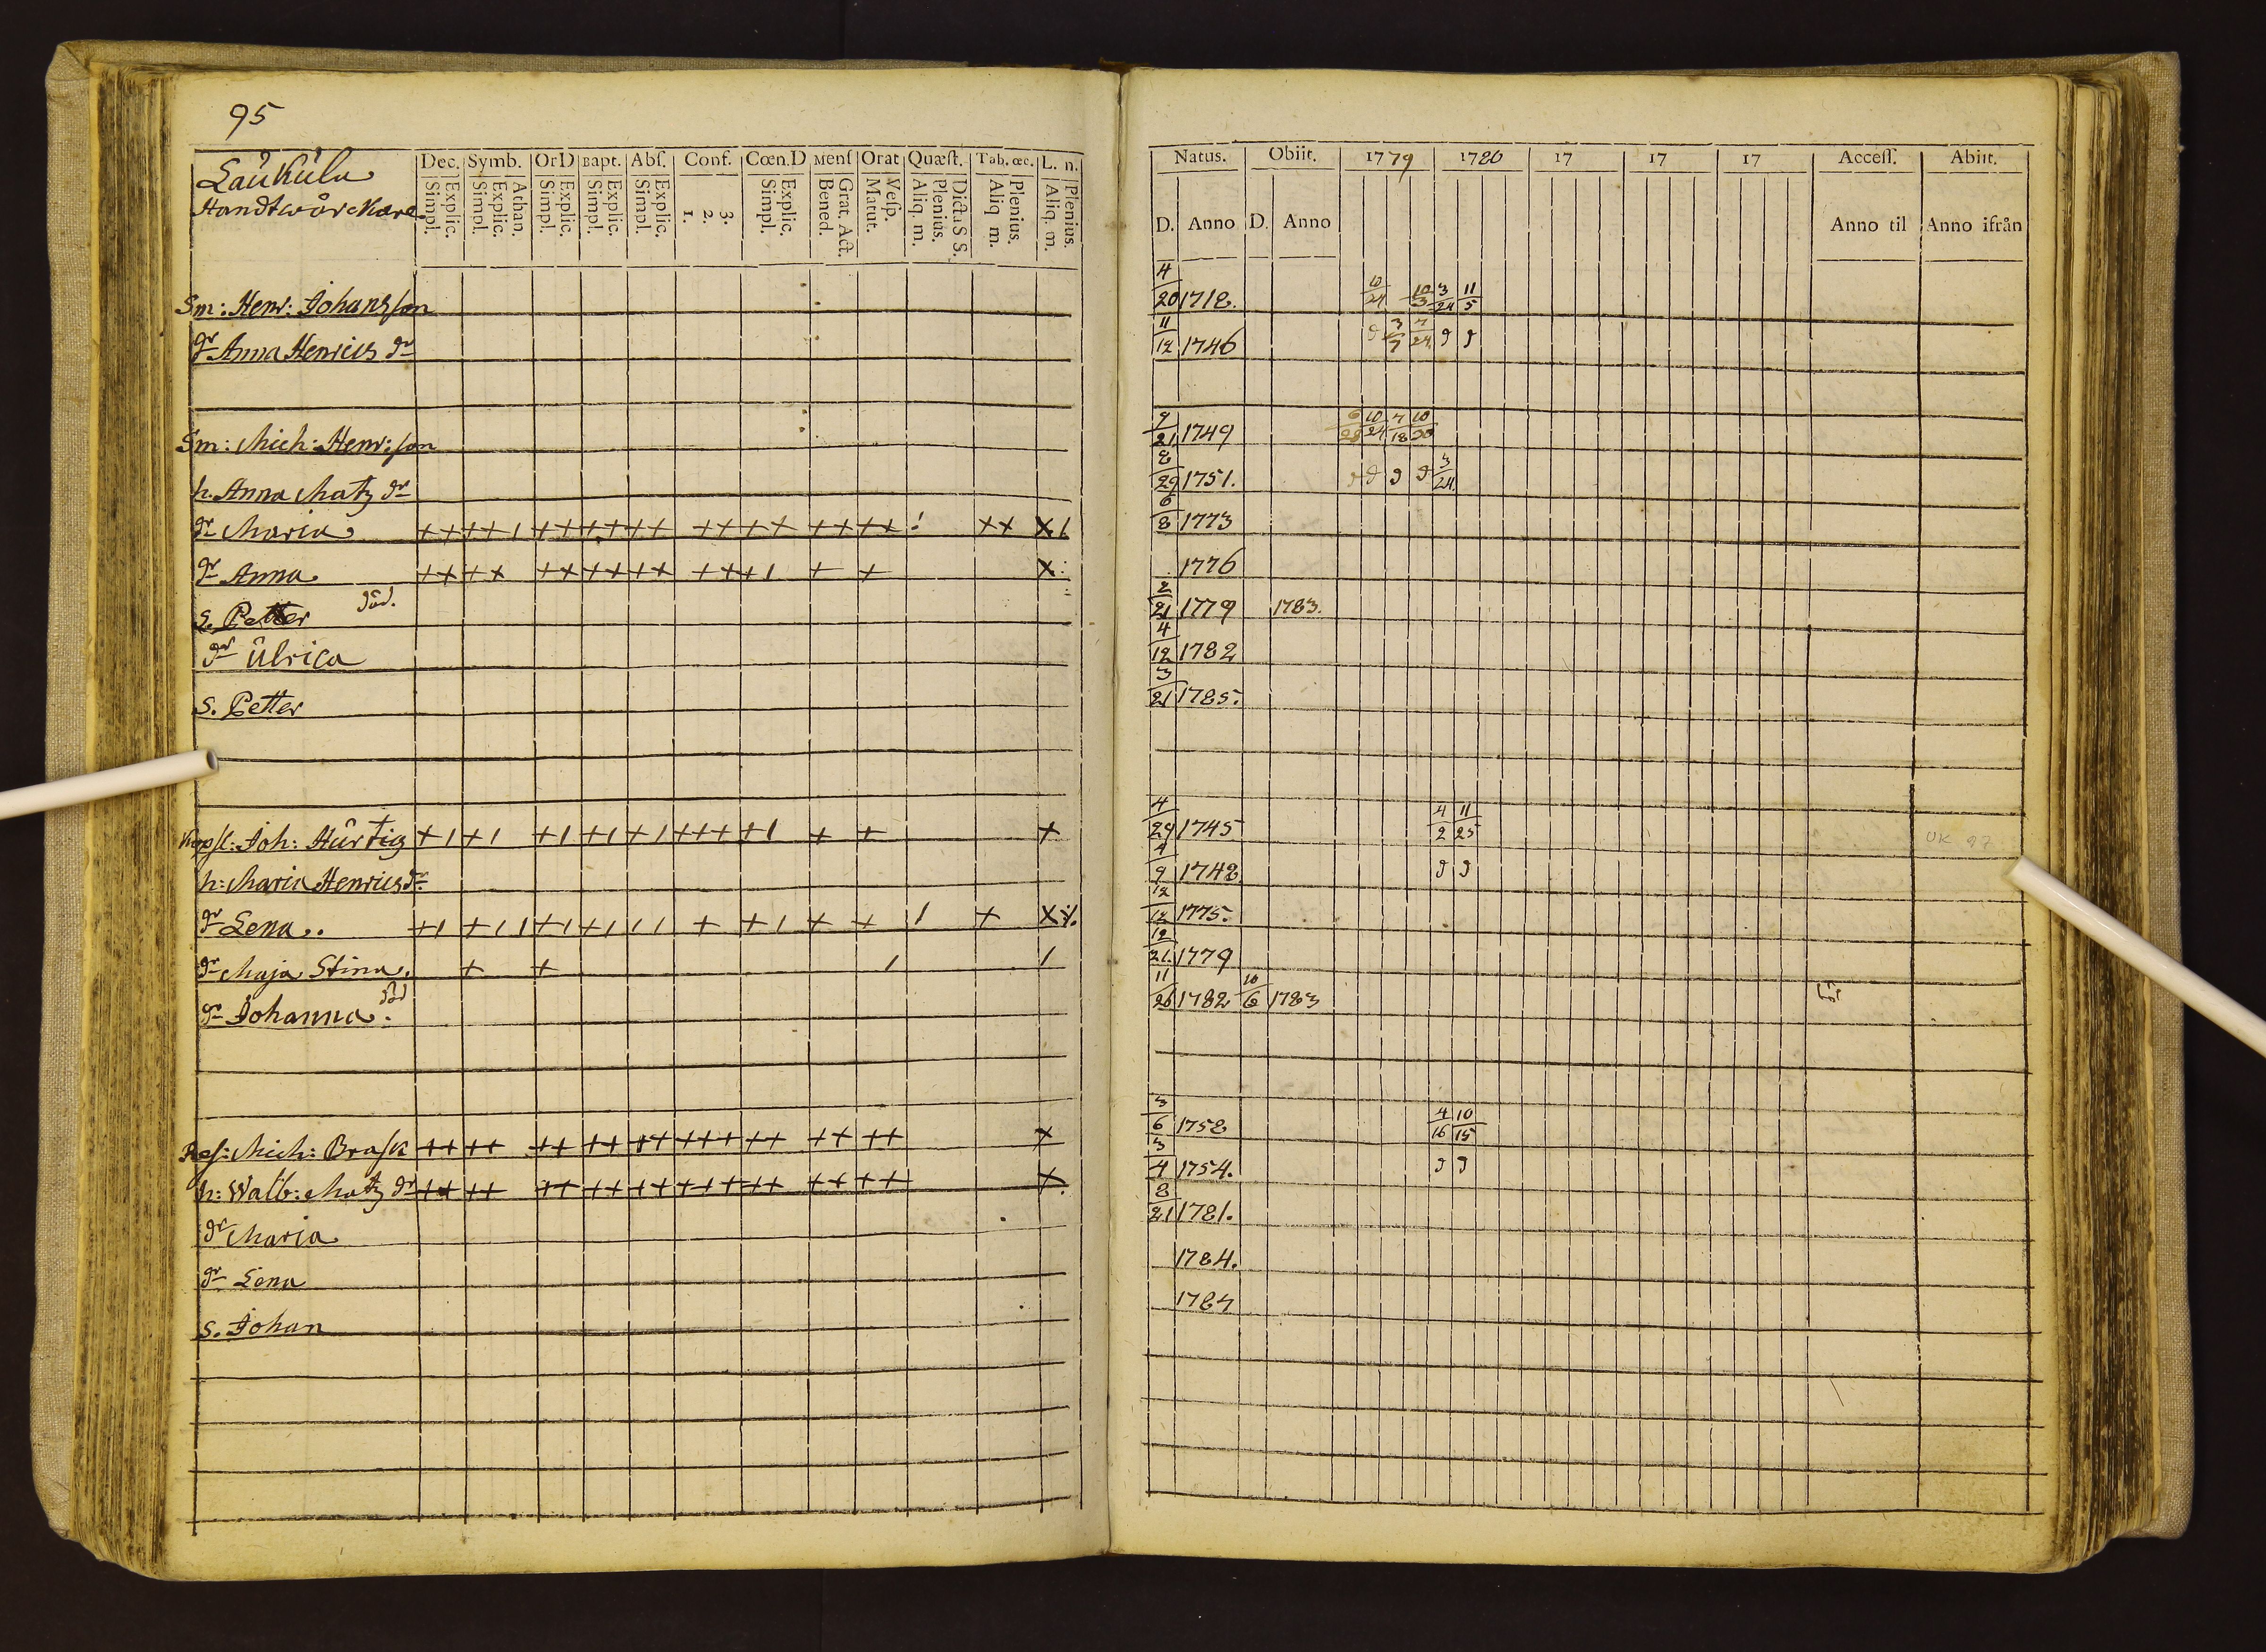 95
Laukula
Handtwärckare
Dec. Symb. OrD Bapt. Abſ. Conf. Cœn.D Menſ Orat Quæſt. Tab. œc. L. n.
Simpl. Explic. Simpl. Explic. Athan. Simpl. Explic. Simpl. Explic. Simpl. Explic. 1. 2. 3. Simpl. Explic. Bened. Grat. Act. Matut. Veſp. Aliq. m. Plenius. Dicta S S. Aliq m. Plenius. Aliq. m. Plenius.
Natus. Obiit. 1779 1780 17 17 17 Acceſſ. Abiit.
D. Anno D. Anno Anno til Anno ifrån
Sm: Henr: Johansſon 4/20 1718. 10/24 10/3 3/24 11/5
dr Anna Henrics dr 11/12 1746
Sm: Mich: Henr:ſon 1749
h. Anna Matz dr 8/29 1751. 3/24.
dr Maria ++ ++ 1 ++ ++ ++ ++ ++ ++ ++ ! ++ X 1 6/8 1773
dr Anna ++ ++ ++ ++ ++ +++ 1 + + X 1776
S. Petter död. 2/21 1779 1783.
dr Ulrica 4/12 1782
S. Petter 3/21 1785.
Joh: Hurtig +1 +1 +1 +1 +1 +++ +1 + + + 4/29 1745 4/2 11/25
UK 97
h: Maria Henricsdr 1748
dr Lena +1 +11 +1 +1 11 + +1 + + 1 + X 12/12 1775.
dr Maja Stina. + + 1 1 12/21. 1779
dr Johanna. död 11/26 1782 10/6 1783
Reſ: Mich: Braſk ++ ++ ++ ++ ++ +++ ++ ++ ++ + 3/6 1758 4/16 10/15
h: Walb: Matz dr ++ ++ ++ ++ ++ +++ ++ ++ ++ +. 3/4 1754.
dr Maria 8/21 1781.
dr Lena 1784.
S. Johan 1787